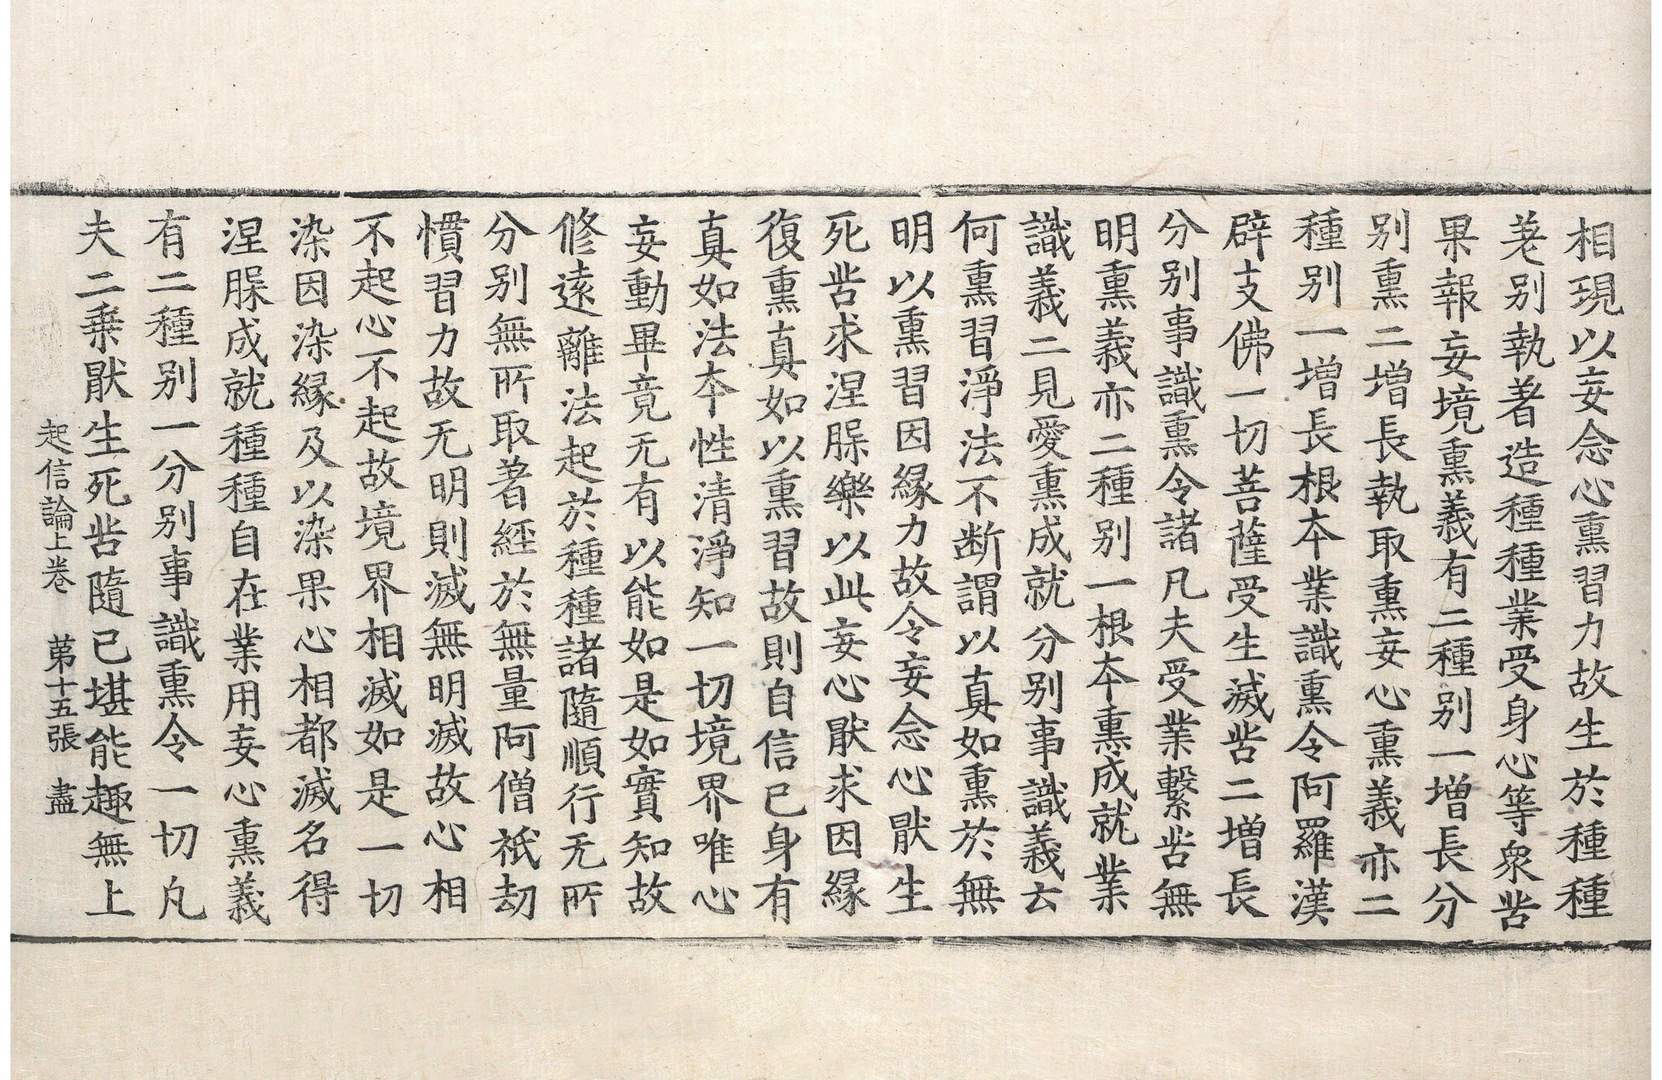 相現以妄念心熏習力故生於種種
差別執著造種種業受身心等衆苦
果報妄境熏義有二種別一增長分
別熏二增長執取熏妄心熏義亦二
種別一增長根本業識熏令阿羅漢
辟支佛一切菩薩受生滅苦二增長
分別事識熏令諸凡夫受業繫苦無
明熏義亦二種別一根本熏成就業
識義二見愛熏成就分別事識義云
何熏習淨法不断謂以真如熏於無
明以熏習因緣力故令妄念心厭生
死苦求涅槃樂以此妄心厭求因緣
復熏真如以熏習故則自信已身有
真如法本性清淨知一切境界唯心
妄動畢竟无有以能如是如實知故
修遠離法起於種種諸隨順行无所
分別無所取著經於無量阿僧祇劫
慣習力故无明則滅無明滅故心相
不起心不起故境界相滅如是一切
染因染緣及以染果心相都滅名得
涅槃成就種種自在業用妄心熏義
有二種別一分別事識熏令一切凡
夫二乗厭生死苦隨已堪能趣無上
起信論上卷 苐十五張 盡